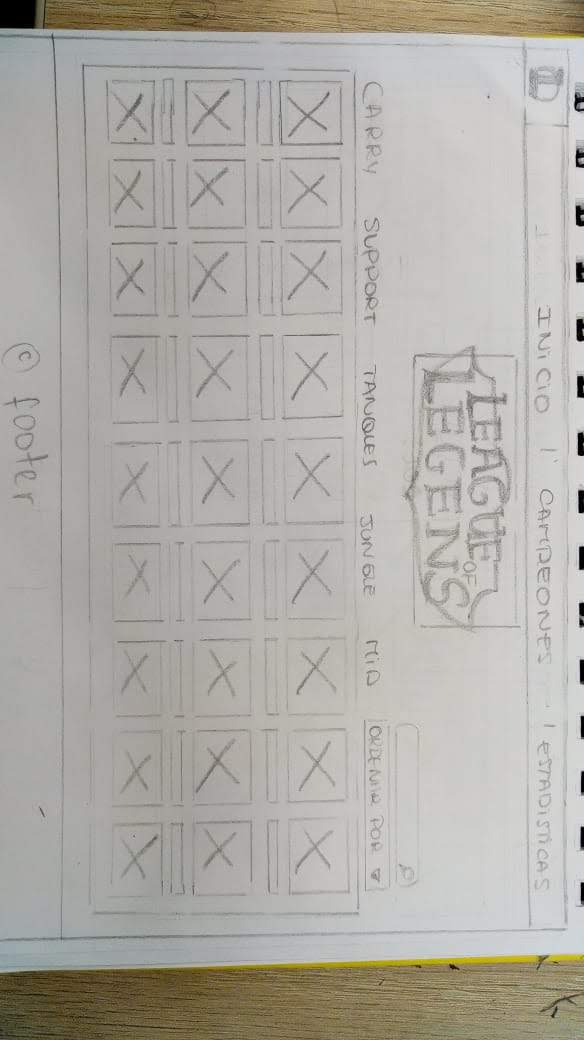 L INICIO | CAMPEONES | ESTADISTICAS
LEAGUE OF
LEGENS
CARRY SUPPORT TANQUES JUNGLE MID ORDENAR POR
© footer